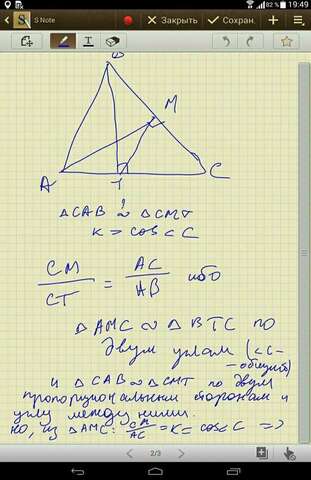 82 %
19:49
S Note
Закрыть
Сохран.
T
B
M
A
T
C
ΔCAB ~ ΔCMT
K = cos<C
CM/CT = AC/AB ибо
ΔAMC ~ ΔBTC по
двум углам (<C-
-общий)
и ΔCAB ~ ΔCMT по двум
пропорциональным сторонам и
углу между ними.
но, из ΔAMC: CM/AC = K = cos<C =>
2/3